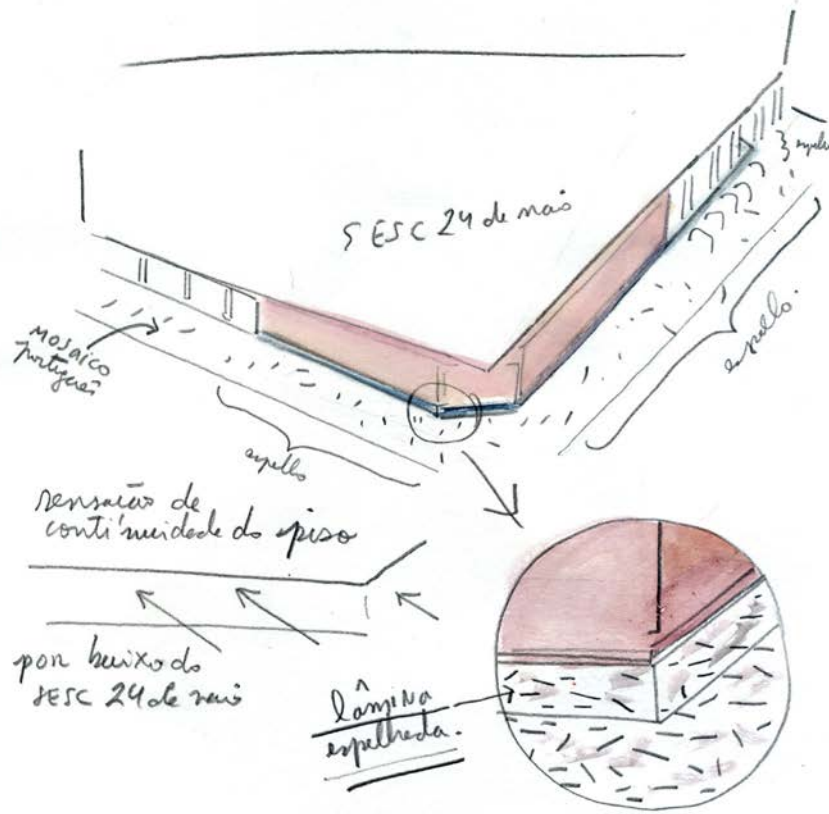 SESC 24 de maio
espelho
mosaico
português
espelho.
espelho
sensação de
continuidade do piso
por baixo do
SESC 24 de maio
lâmina
espelhada.